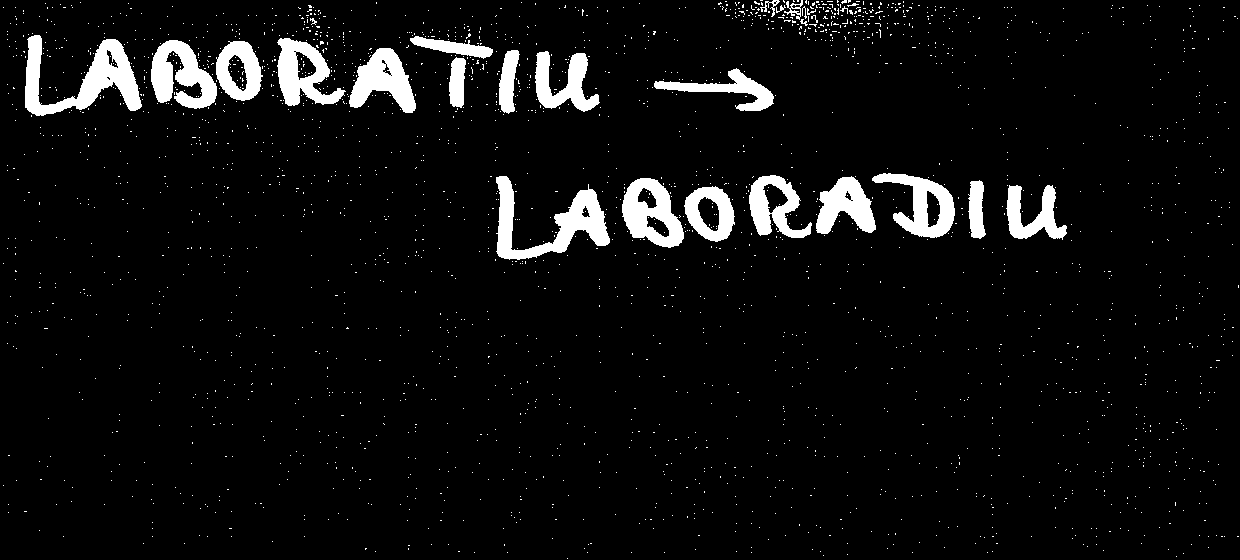 LABORATIU →
LABORADIU